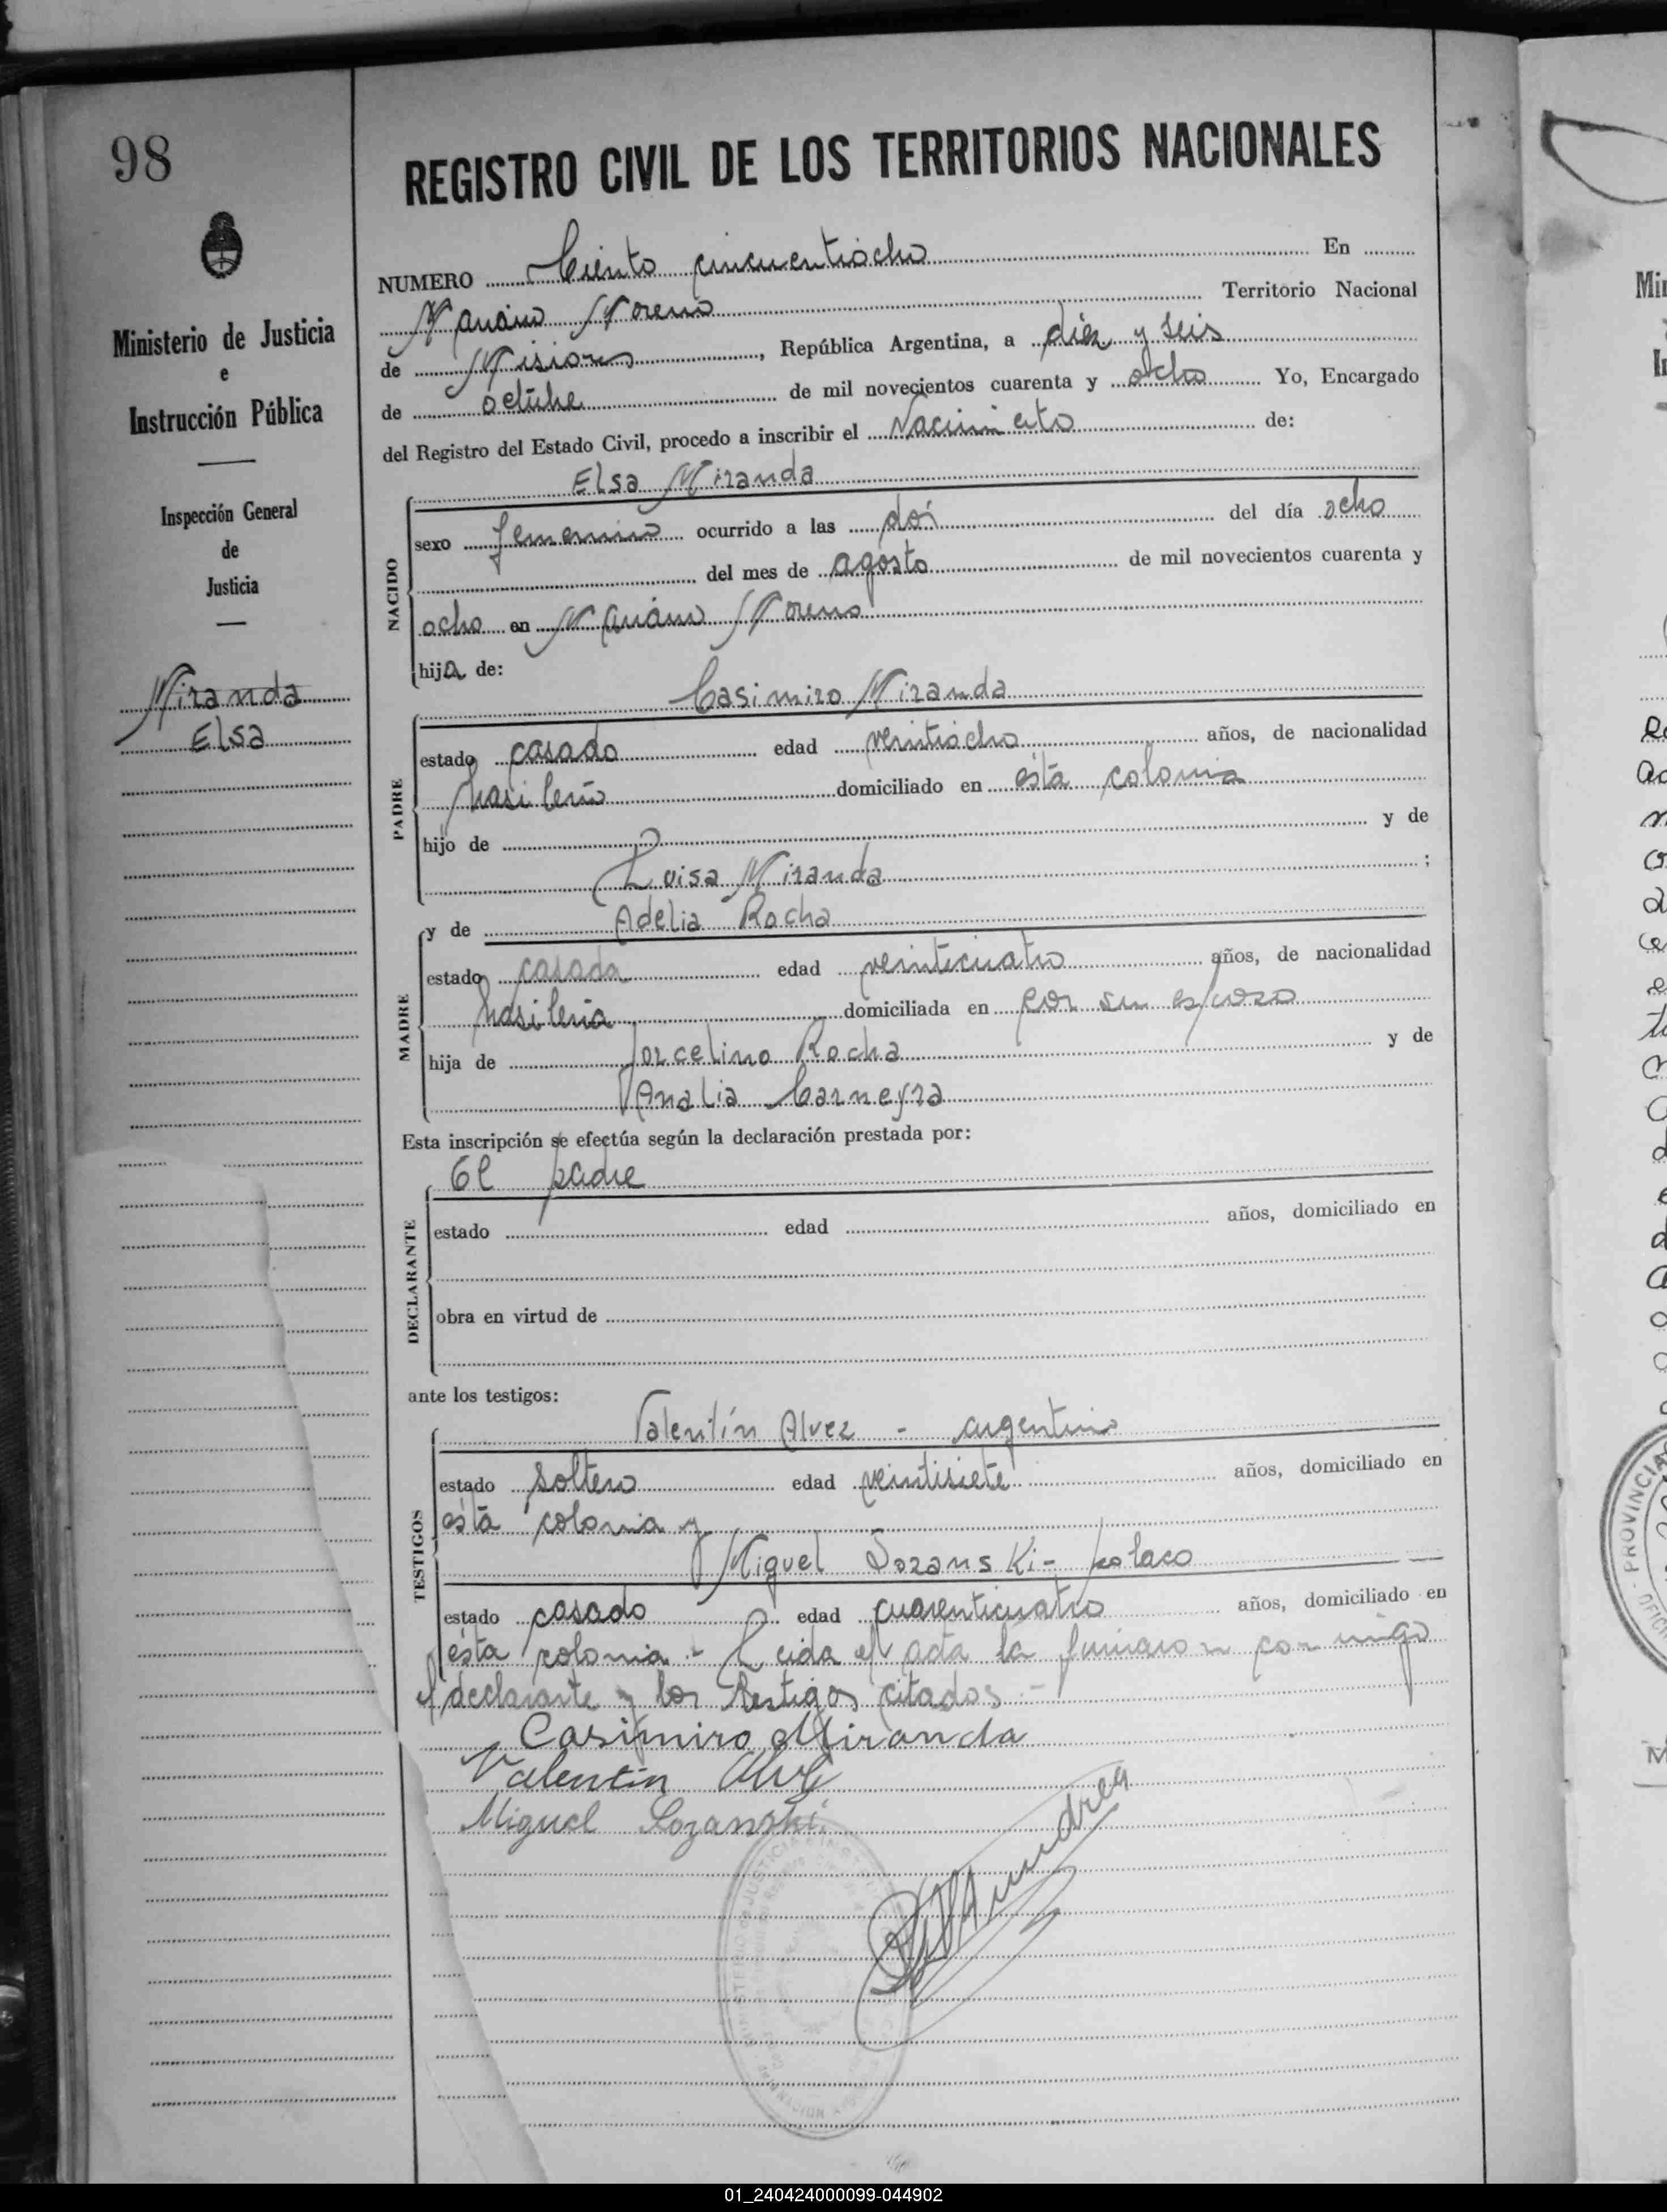 98
REGISTRO CIVIL DE LOS TERRITORIOS NACIONALES
Ministerio de Justicia
e
Instrucción Pública
Inspección General
de
Justicia
Miranda
Elsa
NUMERO Ciento cincuentiocho En
Mariano Moreno Territorio Nacional
de Misiones, República Argentina, a diez y seis
de octubre de mil novecientos cuarenta y ocho Yo, Encargado
del Registro del Estado Civil, procedo a inscribir el Nacimiento de:
Elsa Miranda
NACIDO
sexo femenino ocurrido a las dos del día ocho
del mes de agosto de mil novecientos cuarenta y
ocho en Mariano Moreno
hija de:
Casimiro Miranda
PADRE
estado casado edad veintiocho años, de nacionalidad
brasileño domiciliado en esta colonia
hijo de y de
Luisa Miranda ;
y de Adelia Rocha
MADRE
estado casada edad veinticuatro años, de nacionalidad
brasileña domiciliada en con su esposo
hija de Jorcelino Rocha y de
Analia Carneyra
Esta inscripción se efectúa según la declaración prestada por:
El padre
DECLARANTE
estado edad años, domiciliado en
obra en virtud de
ante los testigos:
Valentín Alvez - argentino
TESTIGOS
estado soltero edad veintisiete años, domiciliado en
esta colonia y
Miguel Sozanski - polaco
estado casado edad cuarenticuatro años, domiciliado en
esta colonia.- Leida el acta la firmaron conmigo
el declarante y los testigos citados.-
Casimiro Miranda
Valentin
Miguel
01_240424000099-044902